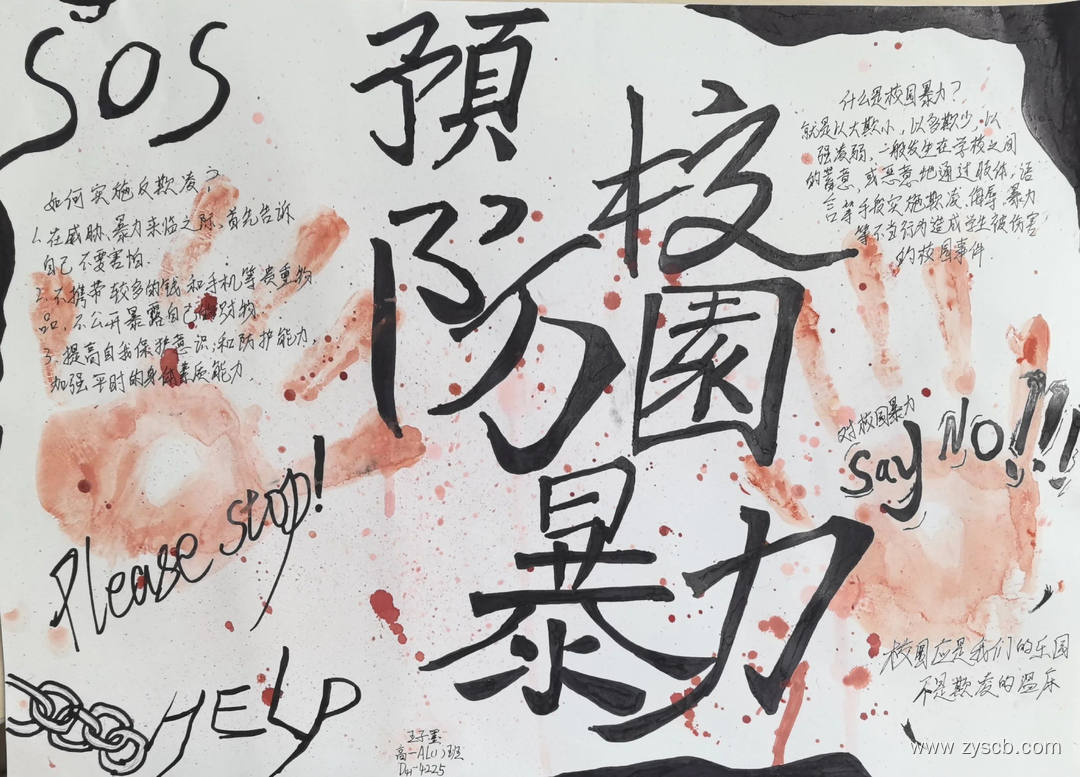 SOS
預
防
校
園
暴力
如何实施反欺凌?
1.在威胁、暴力来临之际,首先告诉
自己不要害怕.
2.不携带较多的钱和手机等贵重物
品,不公开暴露自己的财物.
3.提高自我保护意识;和防护能力,
加强平时的身体素质能力.
什么是校园暴力?
就是以大欺小,以多欺少,以
强凌弱,一般发生在学校之间
的蓄意,或恶意地通过肢体,语
言等手段实施欺凌、侮辱、暴力
等不良行为造成学生被伤害
的校园事件
对校园暴力
Say NO!!!
Please stop!
HELP
校园应是我们的乐园
不是欺凌的温床
王子墨
高一AL(1)班
www.zyscb.com